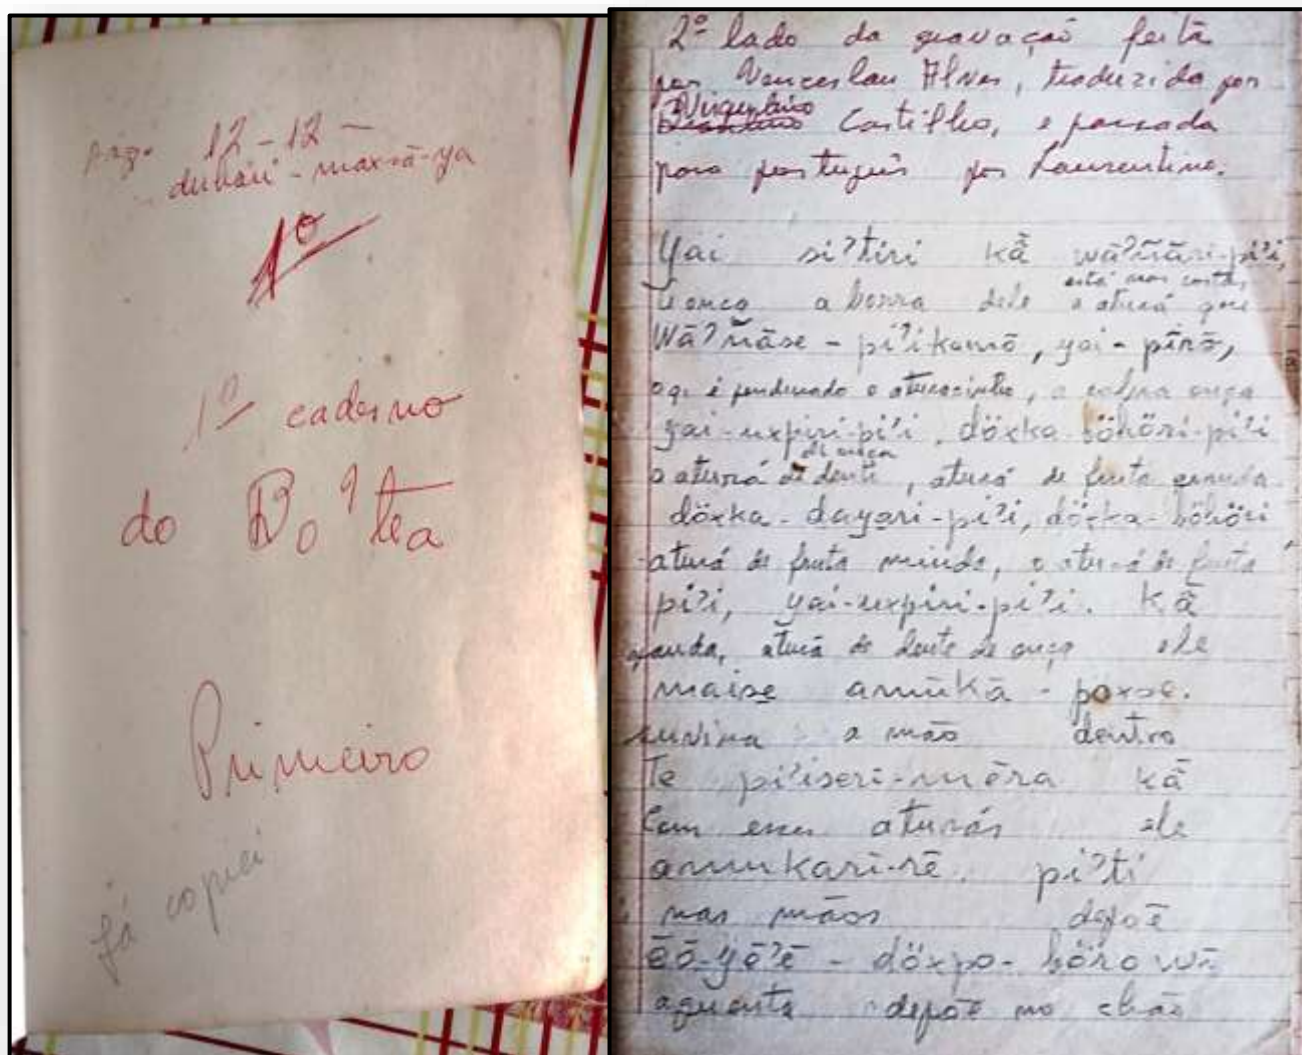 pag. 12-12-
duhari-maxsã-ya
1º
1º caderno
do Bo'tea
Primeiro
já copiei
2º lado da gravação feita
por Venceslau Alves, traduzida por
Virgulino
Castilho, e passada
para portugues por Laurentino.
Yai si?tiri kã wã?ñãri-pi?i,
está nas costas
a borra dele o aturá que
Wã?ñãse - pi?ikamõ, yai-pĩrõ,
aqi é pendurado o aturazinho, a cobra onça
yai-uxpiri-pi?i, döxka-böhöri-pi?i
de onça
o aturá de dente, aturá de fruta
döxka-dayari-pi?i, döxka-böhöri
aturá de fruta miuda, o aturá de fruta
pi?i, yai-uxpiri-pi?i. Kã
aturá de dente de onça ele
maise amũkã-poxse.
a mão dentro
Te pi?iseri-mẽra kã
Com esses aturás ele
amukarĩ-rẽ. pi?ti
nas mãos depõe
ẽõ-yẽ?ẽ - döxpo-
aguenta depõe no chão